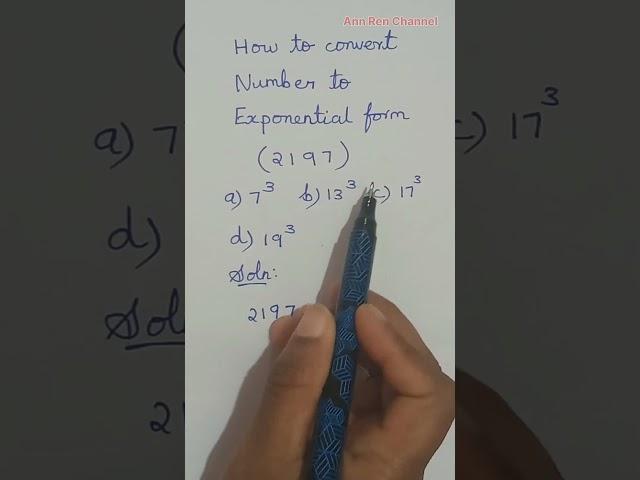 Ann Ren Channel
How to convert
Number to
Exponential form
(2197)
a) 7³ b) 13³ c) 17³
d) 19³
Soln:
2197